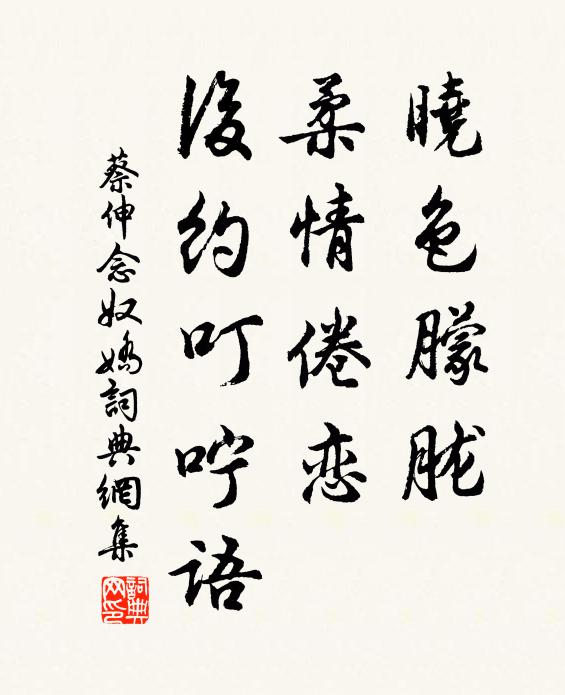 曉色朦朧
柔情倦恋
後約叮咛語
蔡伸念奴嬌詞典網集
詞典网印